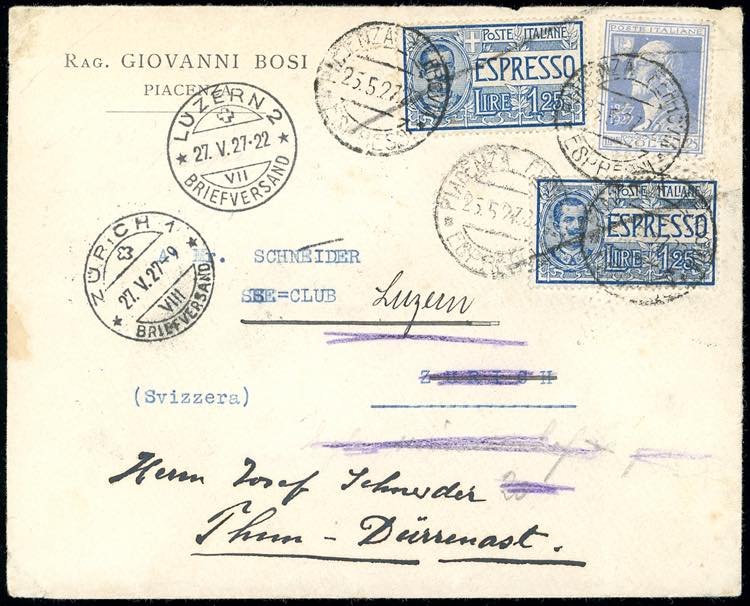 RAG. GIOVANNI BOSI
PIACENZA
POSTE ITALIANE
ESPRESSO
LIRE 1,25
POSTE ITALIANE
PIACENZA
25.5.27
LUZERN 2
27. V. 27-22
VII
BRIEFVERSAND
PIACENZA
25.5.27
POSTE ITALIANE
ESPRESSO
LIRE 1,25
ZÜRICH 1
27. V. 27-9
VIII
BRIEFVERSAND
SCHNEIDER
SSE=CLUB Luzern
ZURICH
(Svizzera)
Herrn Josef Schneider
Thun - Dürrenast.